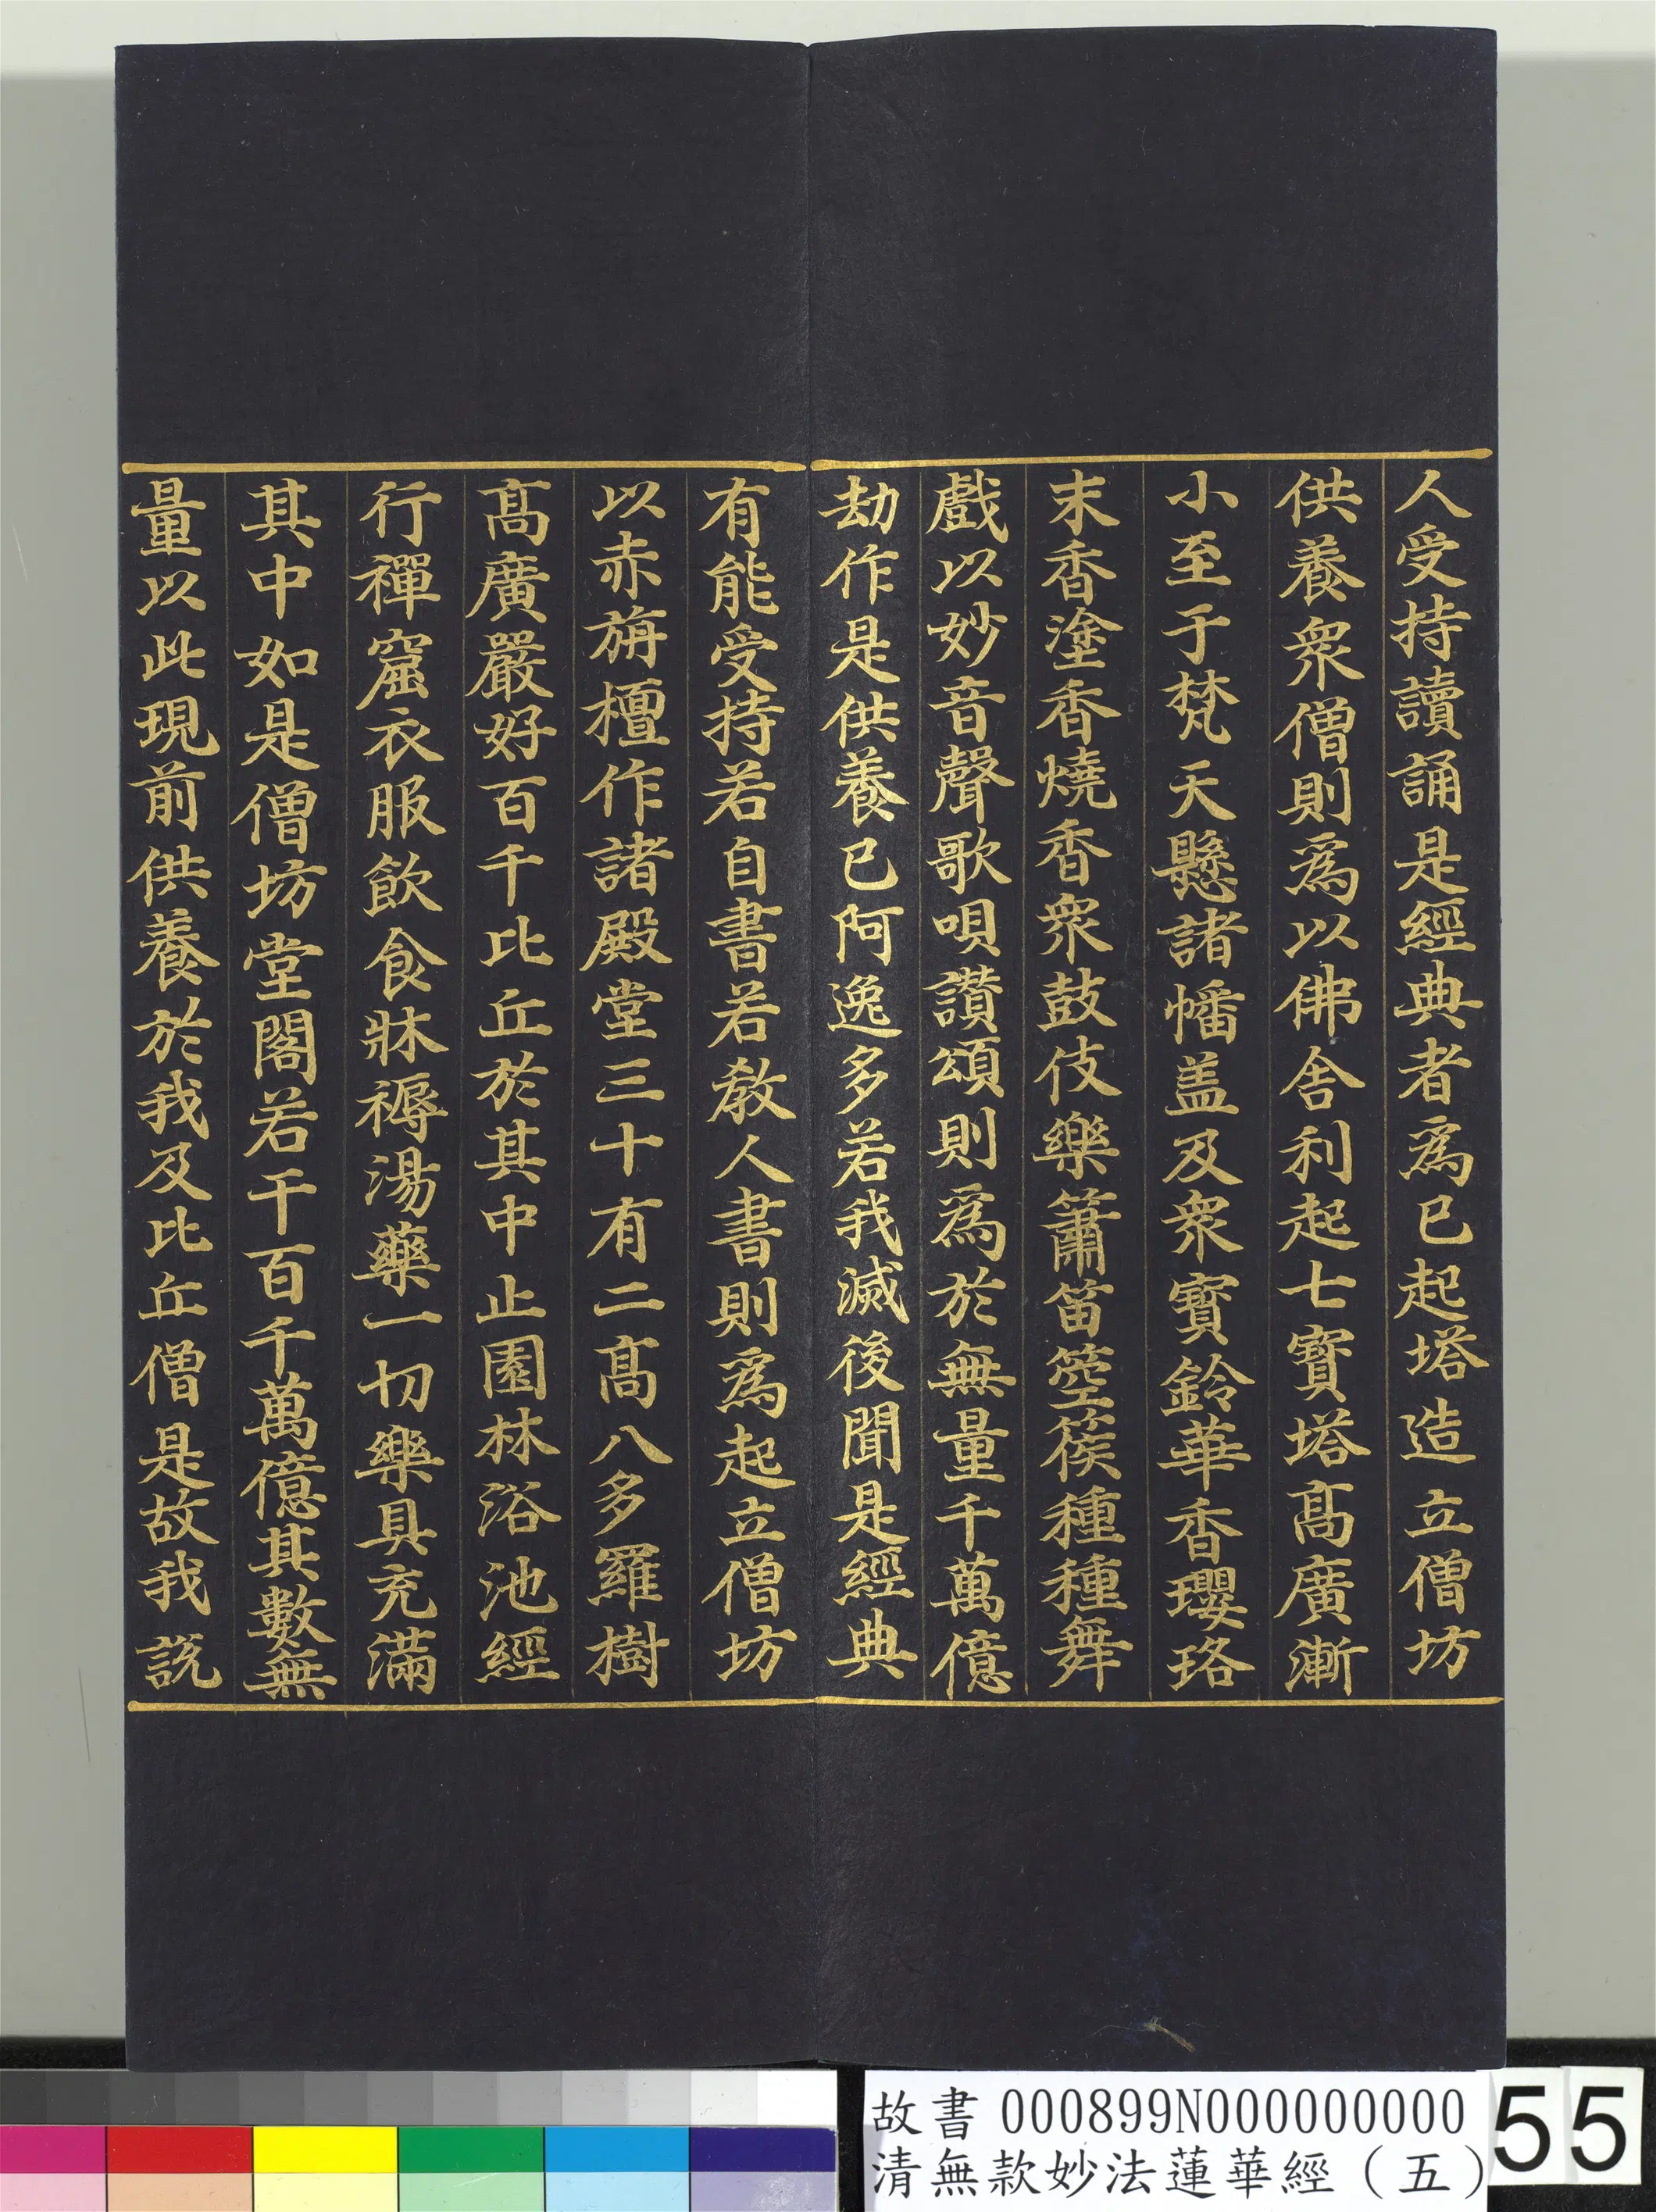 人受持讀誦是經典者為已起塔造立僧坊
供養眾僧則為以佛舍利起七寶塔髙廣漸
小至于梵天懸諸幡盖及眾寶鈴華香瓔珞
末香塗香燒香眾鼓伎樂簫笛箜篌種種舞
戲以妙音聲歌唄讚頌則為於無量千萬億
劫作是供養已阿逸多若我滅後聞是經典
有能受持若自書若教人書則為起立僧坊
以赤旃檀作諸殿堂三十有二髙八多羅樹
髙廣嚴好百千比丘於其中止園林浴池經
行禪窟衣服飲食牀褥湯藥一切樂具充滿
其中如是僧坊堂閣若干百千萬億其數無
量以此現前供養於我及比丘僧是故我說
故書 000899N000000000 55
清無款妙法蓮華經（五）